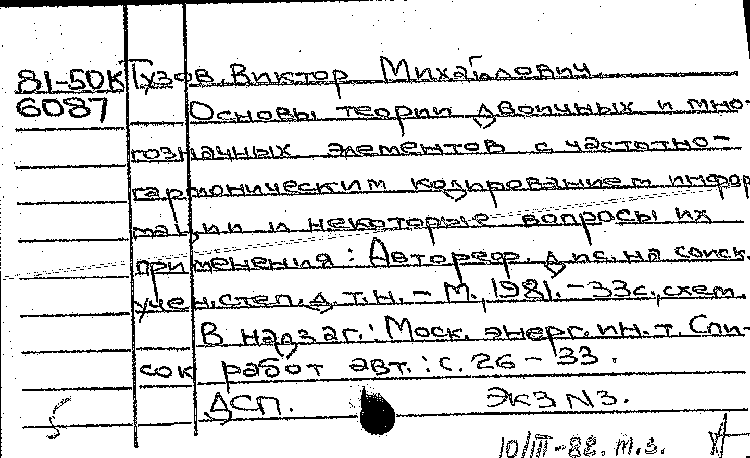 81-50К Гузов, Виктор Михайлович
6087 Основы теории двоичных и мно-
гозначных элементов с частотно-
гармоническим кодированием инфор
мации и некоторые вопросы их
применения: Автореф. дис. на соиск.
учен. степ. д. т. н. - М., 1981. - 33с., схем.
В надзаг.: Моск. энерг. ин.-т. Спи-
сок работ авт.: с. 26-33.
ДСП. ЭКЗ N3.
10/III-88. т.з.